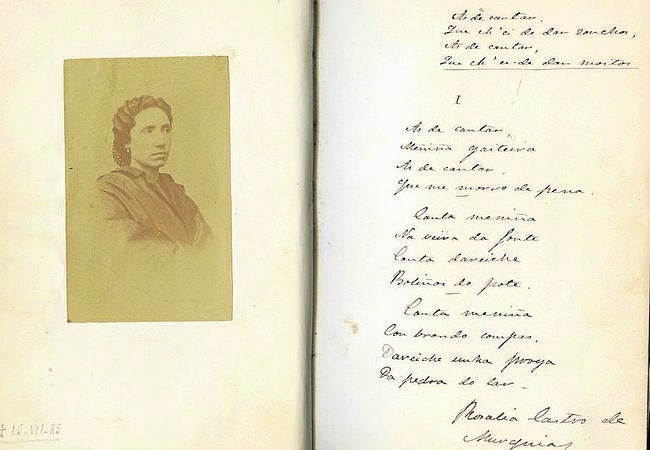 As de cantar.
Que ch'ei de dar zonchos,
As de cantar,
Que ch'ei de dar moitos
I
As de cantar,
Meniña gaiteira
As de cantar.
Que me morro de pena.
Canta meniña
Na veira da fonte
Canta dareiche
Boliños do pote.
Canta meniña
Con brando compas,
Dareiche unha proya
Da pedra do lar-
Rosalia Castro de
Murguia
† 15-VII-85